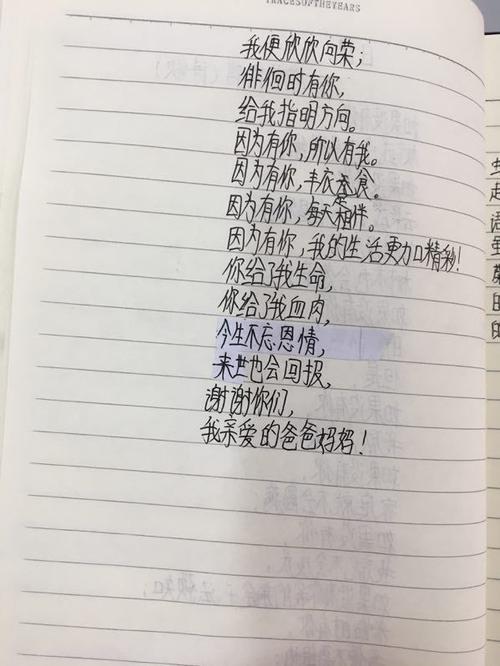 TRACESOFTHEYEARS
我便欣欣向荣；
徘徊时有你，
给我指明方向。
因为有你，所以有我。
因为有你，丰衣足食。
因为有你，每天相伴。
因为有你，我的生活更加精彩！
你给了我生命，
你给了我血肉，
今生不忘恩情，
来世也会回报，
谢谢你们，
我亲爱的爸爸妈妈！